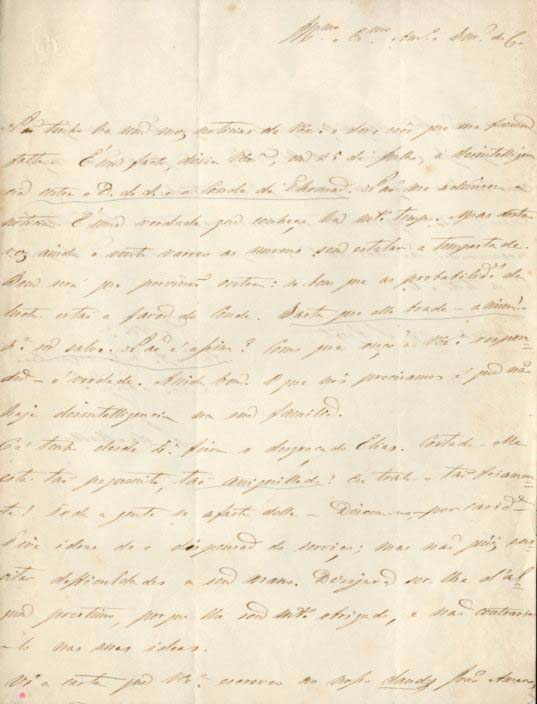 Illmo e Exmo Amo e Snr de Co
Não tenho ha um mez noticias de Vexa e devo crer que me fazem
falta. É um facto, dizia Vexa, em 25 de Julho, a desintelligen
cia entre o D. de S. e o Conde de Thomar. Não me adiantou a
noticia. É uma verdade que conheço ha mto tempo. Mas desta
vez ainda o vento varreu as nuvens sem estalar a tempestade.
Bom será que previnam outra: se bem que as probabilides da
lucta estão a favor do Conde. Basta que elle brade - a mim!
Não é assim? Como que ouço a Vexa respon-
der - é verdade. Ainda bem. O que nós precisamos é que não
haja desintelligencia na sua familia.
Cá tenho desde 3a feira o desgraçado Elias. Coitado. Ele
está tão pequenito, tão aniquillado! Cá trata-o tão friamen-
te! toda a gente se afasta delle. por caride
Tive ideas de o dispensar do serviço; mas não quiz sus-
citar difficuldades a seu irmão. Desejava ser-lhe d'al-
gum prestimo, porque lhe sou mto obrigado, e não contraria-
lo nas suas ideas.
Vi a carta que Vexa escreveu ao nosso dandy João